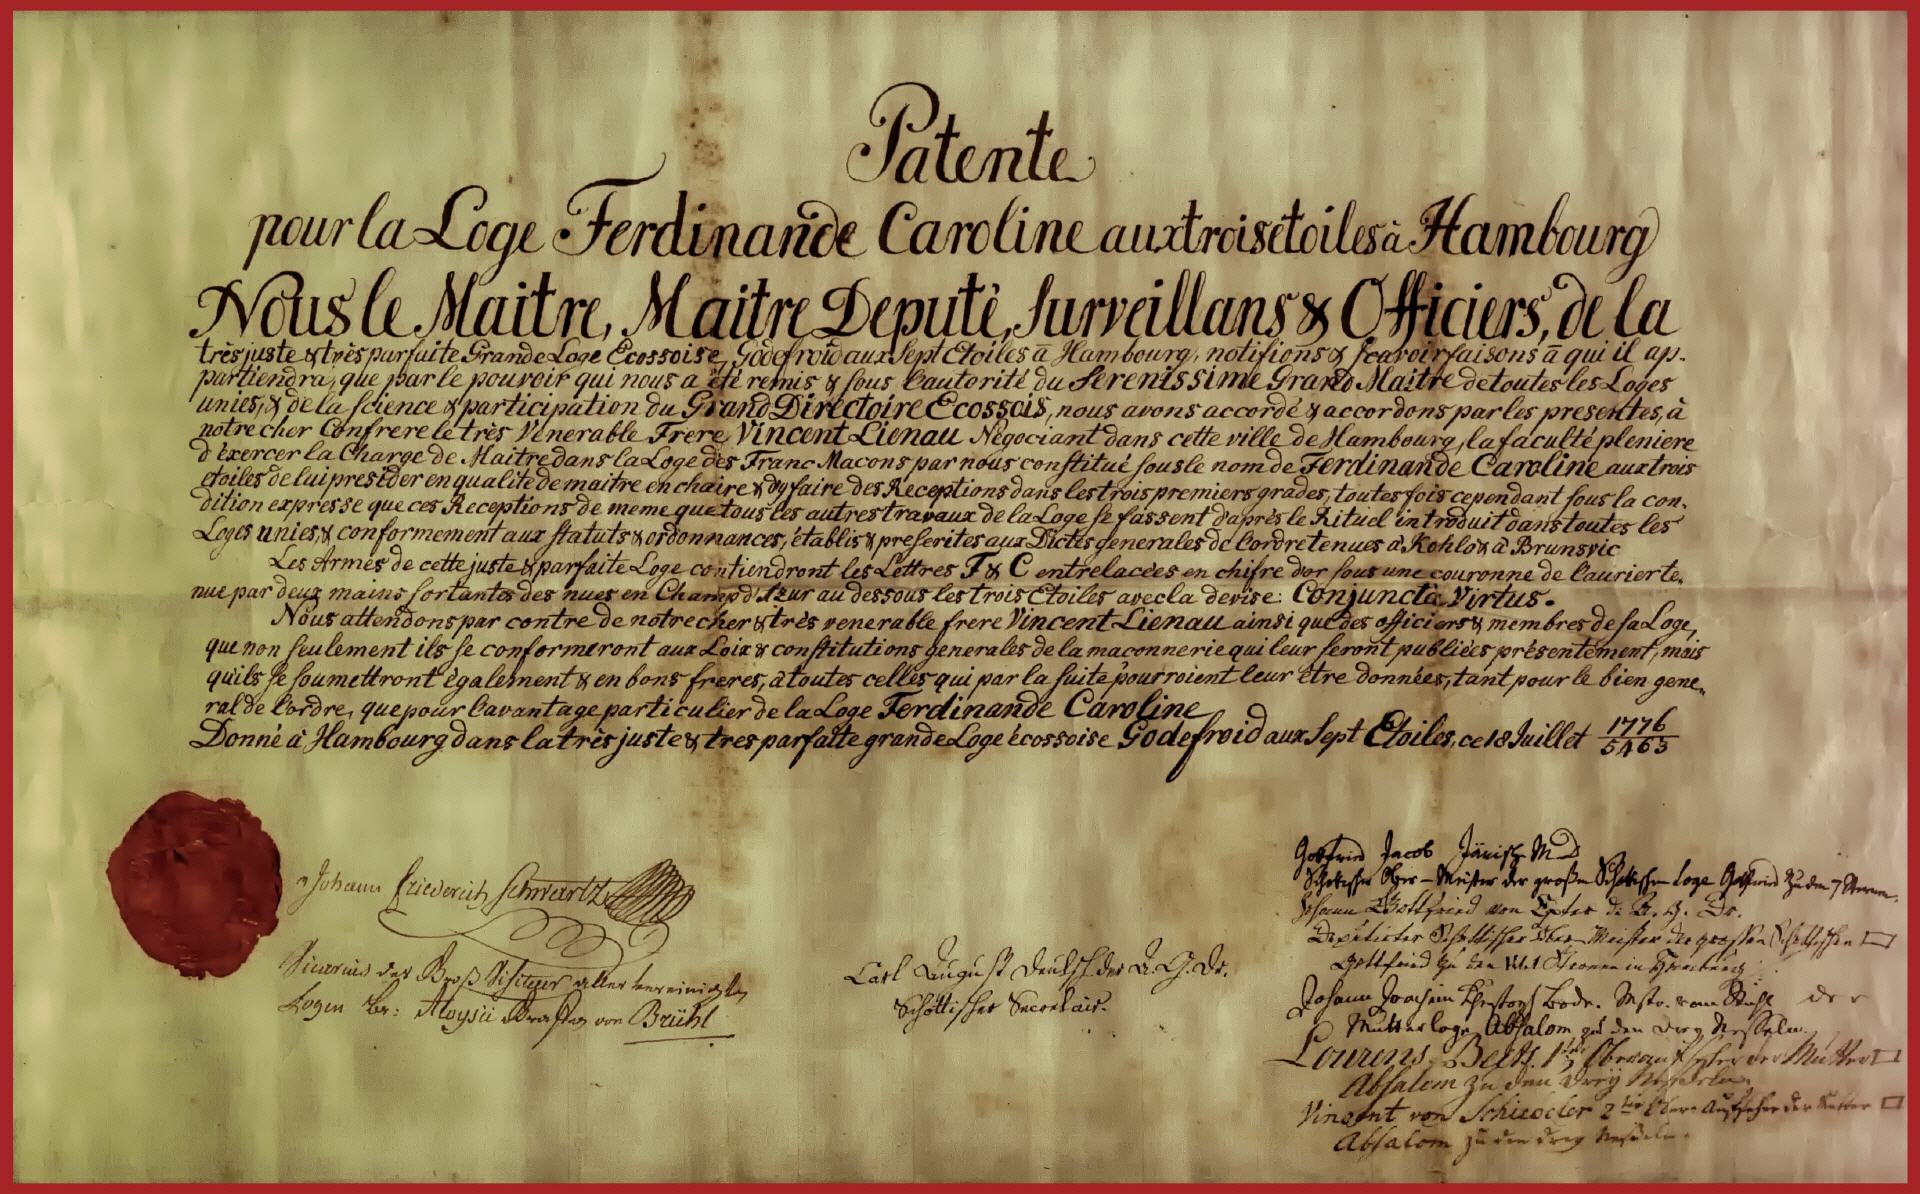 Patente
pour la Loge Ferdinande Caroline aux trois étoiles à Hambourg
Nous le Maitre, Maitre Deputè, Surveillans & Officiers, de la
très juste & très parfaite Grande Loge Ecossoise, Godefroid aux Sept Etoiles à Hambourg, notifions & scavoir faisons à qui il ap-
partiendra, que par le pouvoir qui nous a été remis & sous l'autorité du Serenissime Grand Maitre de toutes les Loges
unies, & de la science & participation du Grand Directoire Ecossois, nous avons accordé & accordons par les presentes, à
notre cher Confrere le très Venerable Frere, Vincent Lienau Négociant dans cette ville de Hambourg, la faculté pleniere
d'éxercer la Charge de Maitre dans la Loge des Franc Macons par nous constitué sous le nom de Ferdinande Caroline aux trois
etoiles de lui presider en qualité de maitre en chaire & d'y faire des Receptions dans les trois premiers grades, toutes fois cependant sous la con-
dition expresse que ces Receptions de meme que tous les autres travaux de la Loge se fassent d'après le Rituel introduit dans toutes les
Loges unies, & conformement aux statuts & ordonnances, établis & prescrites aux Dictes generales de l'ordre tenues à Kohlo & à Brunsvic
Les Armes de cette juste & parfaite Loge contiendront les Lettres F & C entrelacées en chifre d'or sous une couronne de laurier te-
nue par deux mains sortantes des nues en Champ d'Azur au dessous les trois Etoiles avec la devise: Conjuncta Virtus.
Nous attendons par contre de notre cher & très venerable frere Vincent Lienau ainsi que des officiers & membres de sa Loge,
que non seulement ils se conformeront aux Loix & constitutions generales de la maconnerie qui leur seront publiées présentement, mais
qu'ils se soumettront également & en bons freres, à toutes celles qui par la suite pourroient leur être données, tant pour le bien gene-
ral de l'ordre, que pour l'avantage particulier de la Loge Ferdinande Caroline
Donné à Hambourg dans la très juste & tres parfaite grande Loge écossoise Godefroid aux Sept Etoiles, ce 18 Juillet 1776
5463
Johann Friederich Schwartz
Vicarius des Groß Visitator aller vereinigten
Logen Br: Aloysii Grafen von Brühl
Carl August
Schottischer Secretair.
Gottfried Jacob Jänisch M D
Schottischer Ober-Meister der großen Schottischen Loge Gottfried zu den 7 Sternen.
Johann Gottfried von
Deputirter Schottischer Ober-Meister der grossen Schottischen
Gottfried zu den Sternen in Hamburg
Johann Joachim Christoph Bode. Mstr. vom Stuhl der
Mutterloge Absalom zu den drey Nesseln.
Lourens 1ster Oberaufseher der Mutter
Absalom zu den drey Nesseln
Vincent von 2ter Ober Aufseher der Mutter
Absalom zu den drey Nesseln.